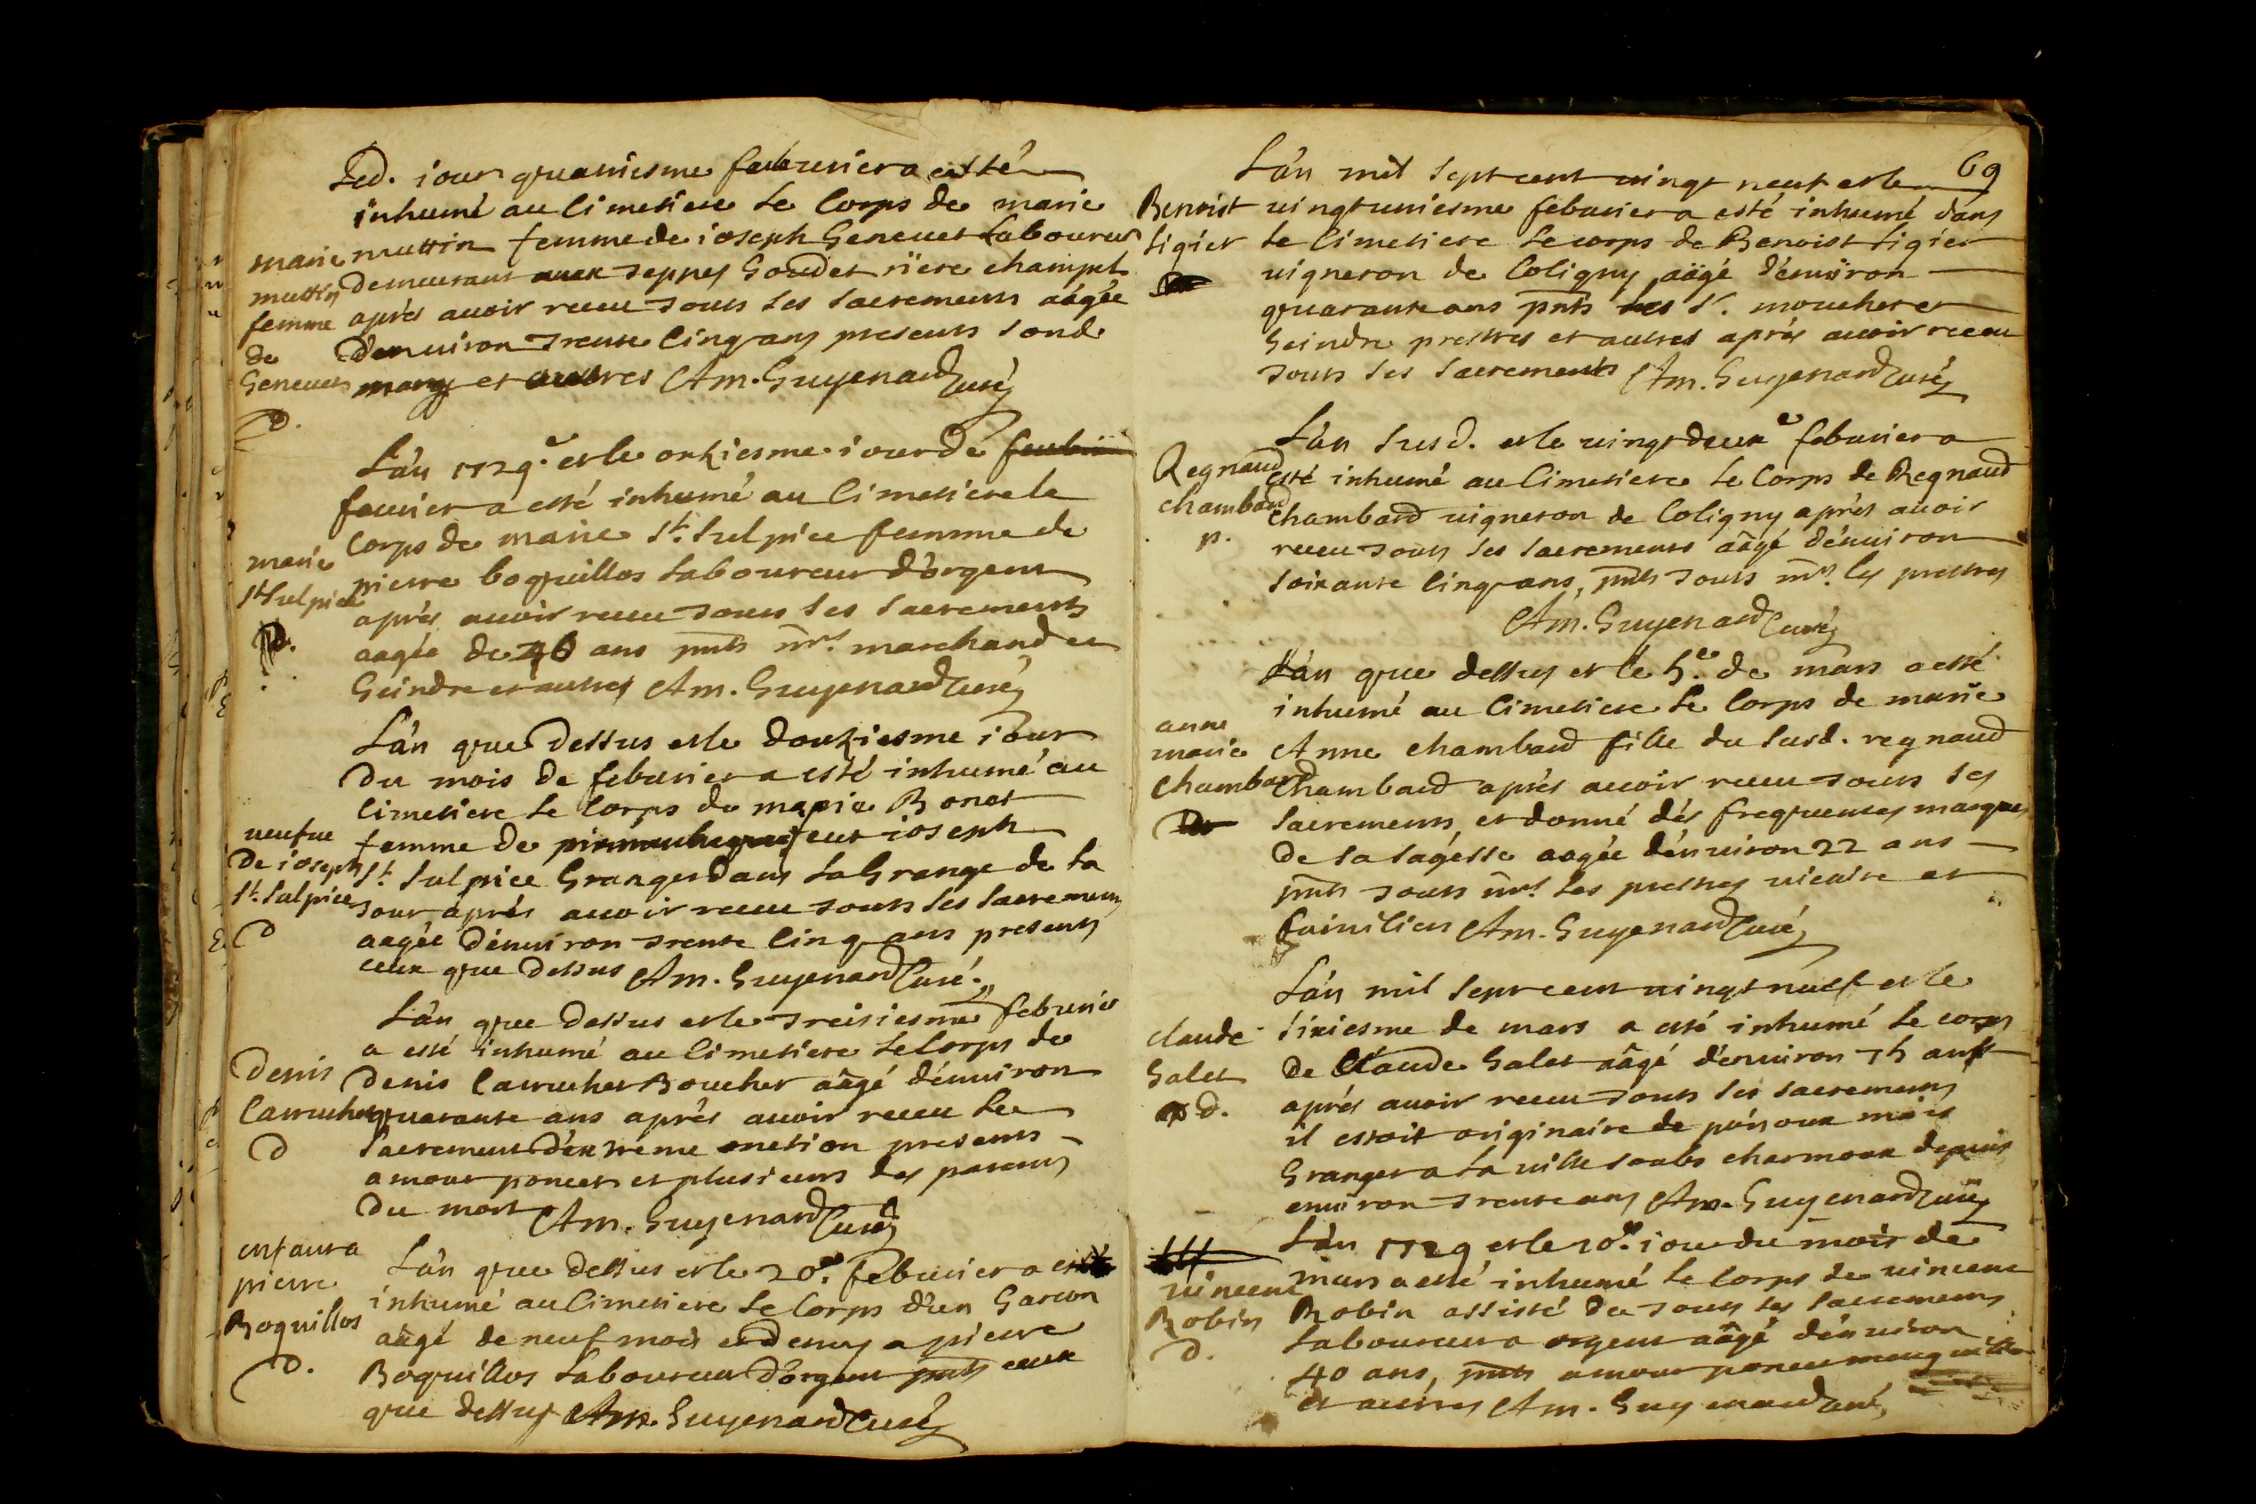 Led. iour quaniesme feburier a esté
inhumé au Cimetiere le Corps de marie
muttin femme de ioseph Geneuet laboureur
demeurant aux seppes Goudet riere champet
aprés auoir receu touts les sacrements aâgée
d'enuiron trente cinq ans presents son d.
mary et autres Am. Guyenard Curé
marie
muttin
femme
de
Geneuet
d.
L'an 1729.e et le onziesme iour de
feurier a esté inhumé au Cimetiere le
Corps de marie St. Sulpice femme de
pierre boquillos laboureur d'orgent
aprés auoir receu touts les sacrements
aagée de 46 ans pnts mrs. marchand et
Geindre et autres Am. Guyenard Curé
marie
St Sulpice
d.
L'an que dessus et le douziesme iour
du mois de feburier a esté inhumé au
Cimetiere le Corps de marie Bonet
femme de feut ioseph
St. Sulpice Granger dans la Grange de la
tour, aprés auoir receu touts les sacrements
aagée d'enuiron trente cinq ans presents
ceux que dessus Am. Guyenard Curé.
ueufue
de ioseph
St. Sulpice
d
L'an que dessus et le treisiesme feburier
a esté inhumé au Cimetiere le Corps de
denis Carruchet Boucher aâgé d'enuiron
quarante ans aprés auoir receu le
sacrement d'extréme onction presents
amour poncet et plusieurs des parents
du mort Am. Guyenard Curé
Denis
Carruchet
d
L'an que dessus et le 20.e feburier a esté
inhumé au Cimetiere le Corps d'un Garcon
aâgé de neuf mois et demy a pierre
Boquillos laboureur d'orgent pnts ceux
que dessus Am. Guyenard Curé
enfant a
pierre
Boquillos
d.
69
L'an mil sept cent vingt neuf et le
uingtuniesme feburier a esté inhumé dans
le Cimetiere le corps de Benoist Ligier
uigneron de Coligny aâgé d'enuiron
quarante ans pnts les Sr. mouchet et
Geindre prestres et autres aprés auoir receu
touts les sacrements Am. Guyenard Curé
Benoist
Ligier
L'an susd. et le uingtdeuxe feburier a
esté inhumé au Cimetiere le Corps de Regnaud
Chambard uigneron de Coligny aprés auoir
receu touts les sacrements aâgé d'enuiron
soixante cinq ans, pnts touts mrs. les prestres
Am. Guyenard Curé
Regnaud
chambard
p.
L'an que dessus et le 5.e de mars a esté
inhumé au Cimetiere le Corps de marie
Anne chambard fille du susd. regnaud
Chambard aprés auoir receu touts les
sacrements, et donné dés frequentes marques
de sa sagesse aagée d'enuiron 22 ans
pnts touts mrs. les prestres uicaire et
familiers Am. Guyenard Curé
anne
marie
chambard
L'an mil septcent uingt neuf et le
sixiesme de mars a esté inhumé le corps
de Claude Galet aâgé d'enuiron 75 ans
aprés auoir receu touts les sacrements
il estoit originaire de poisoux mais
Granger a la uille soubs charmoux depuis
enuiron trente ans Am. Guyenard Curé
claude
Galet
d.
L'an 1729 et le 10.e iour du mois de
mars a esté inhumé le Corps de uincent
Robin assisté de touts les sacrements
laboureur a orgent aâgé d'enuiron
40 ans, pnts amour poncet
et autres Am. Guyenard Curé
uincent
Robin
d.